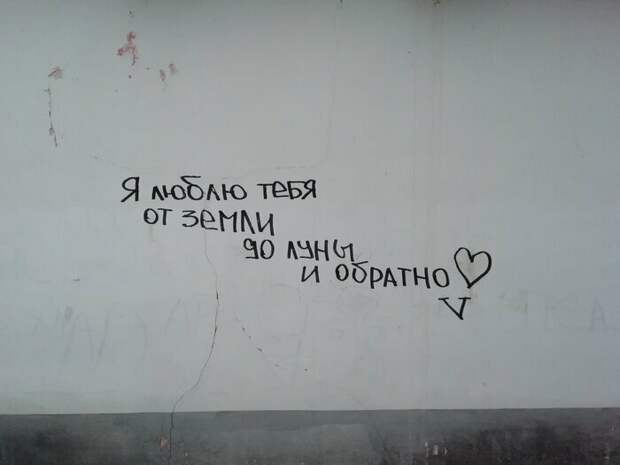 Я люблю тебя
от земли
до луны
и обратно ♡
V